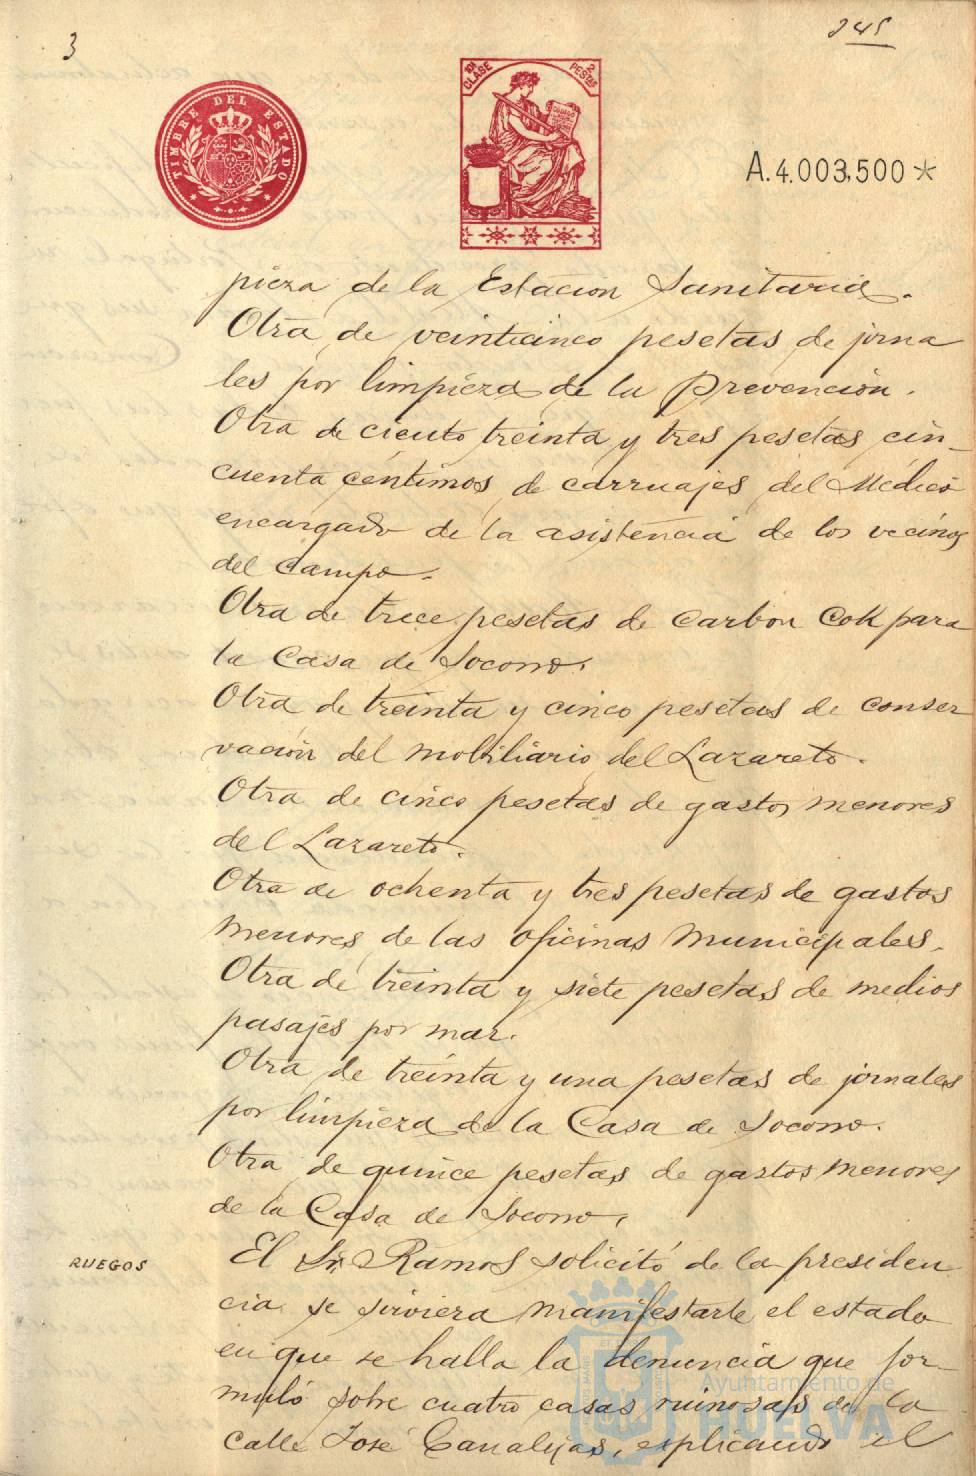 3
245
TIMBRE DEL ESTADO
10ª CLASE
2 PESETAS
A.4.003,500*
pieza de la Estacion Sanitaria.
Otra de veinticinco pesetas de jorna
les por limpieza de la Prevención.
Otra de ciento treinta y tres pesetas cin-
cuenta céntimos de carruajes del Médico
encargado de la asistencia de los vecinos
del campo.
Otra de trece pesetas de carbon Cok para
la Casa de Socorro.
Otra de treinta y cinco pesetas de conser
vación del mobiliario del Lazareto.
Otra de cinco pesetas de gastos menores
del Lazareto.
Otra de ochenta y tres pesetas de gastos
menores de las oficinas Municipales.
Otra de treinta y siete pesetas de medios
pasajes por mar.
Otra de treinta y una pesetas de jornales
por limpieza de la Casa de Socorro.
Otra de quince pesetas de gastos menores
de la Casa de Socorro.
RUEGOS
El Sr. Ramos solicitó de la presiden
cia se sirviera manifestarle el estado
en que se halla la denuncia que for-
muló sobre cuatro casas ruinosas de la
calle José Canalejas, explicando el
Ayuntamiento de
HUELVA